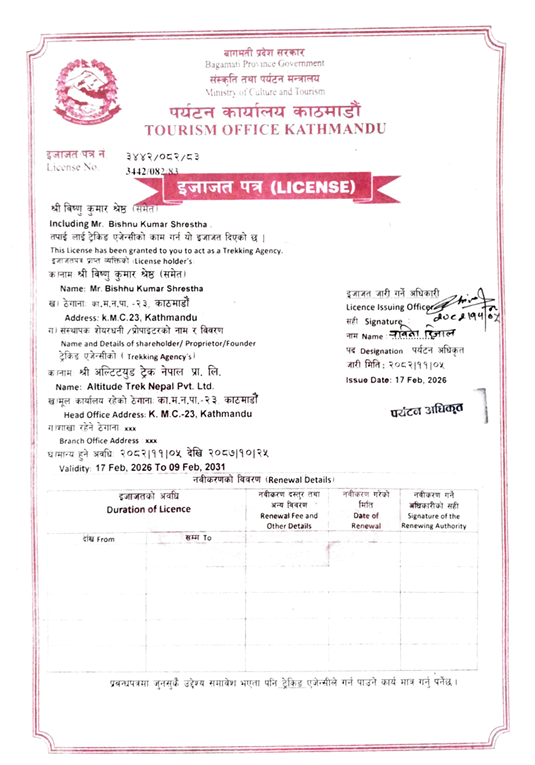 बागमती प्रदेश सरकार
Bagamati Province Government
संस्कृति तथा पर्यटन मन्त्रालय
Ministry of Culture and Tourism
पर्यटन कार्यालय काठमाडौं
TOURISM OFFICE KATHMANDU
इजाजत पत्र नं ३४४२/०८२/८३
License No. 3442/082/83
इजाजत पत्र (LICENSE)
श्री बिष्णु कुमार श्रेष्ठ (समेत)
Including Mr. Bishnu Kumar Shrestha .
तपाई लाई ट्रेकिङ एजेन्सीको काम गर्न यो इजाजत दिएको छ |
This License has been granted to you to act as a Trekking Agency.
इजाजतपत्र प्राप्त व्यक्तिको :License holder's
क।नाम श्री बिष्णु कुमार श्रेष्ठ (समेत)
Name: Mr. Bishhu Kumar Shrestha
ख। ठेगाना: का.म.न.पा. -२३, काठमाडौं
Address: k.M.C.23, Kathmandu
ग। संस्थापक शेयरधनी /प्रोपाइटरको नाम र बिवरण
Name and Details of shareholder/ Proprietor/Founder
ट्रेकिङ एजेन्सीको ( Trekking Agency's)
क।नाम श्री अल्टिटयुड ट्रेक नेपाल प्रा. लि.
Name: Altitude Trek Nepal Pvt. Ltd.
ख।मूल कार्यालय रहेको ठेगाना: का.म.न.पा.-२३. काठमाडौं
Head Office Address: K. M.C.-23, Kathmandu
ग।शाखा रहेने ठेगाना: xxx
Branch Office Address xxx
घ।मान्य हुने अवधि: २०८२|११|०५ देखि २०८७|१०|२५
Validity: 17 Feb, 2026 To 09 Feb, 2031
इजाजत जारी गर्ने अधिकारी
Licence Issuing Officer
सही Signature :
नाम Name : रिजाल
पद Designation पर्यटन अधिकृत
जारी मिति : २०८२|११|०५
Issue Date: 17 Feb, 2026
पर्यटन अधिकृत
नवीकरणको बिवरण (Renewal Details)
इजाजतको अवधि
Duration of Licence
नवीकरण दस्तुर तथा
अन्य बिवरण
Renewal Fee and
Other Details
नवीकरण गरेको
मिति
Date of
Renewal
नवीकरण गर्ने
अधिकारीको सही
Signature of the
Renewing Authority
देखि From
सम्म To
प्रबन्धपत्रमा जुनसुकै उद्देश्य समावेश भएता पनि ट्रेकिङ एजेन्सीले गर्न पाउने कार्य मात्र गर्नु पर्नेछ ।